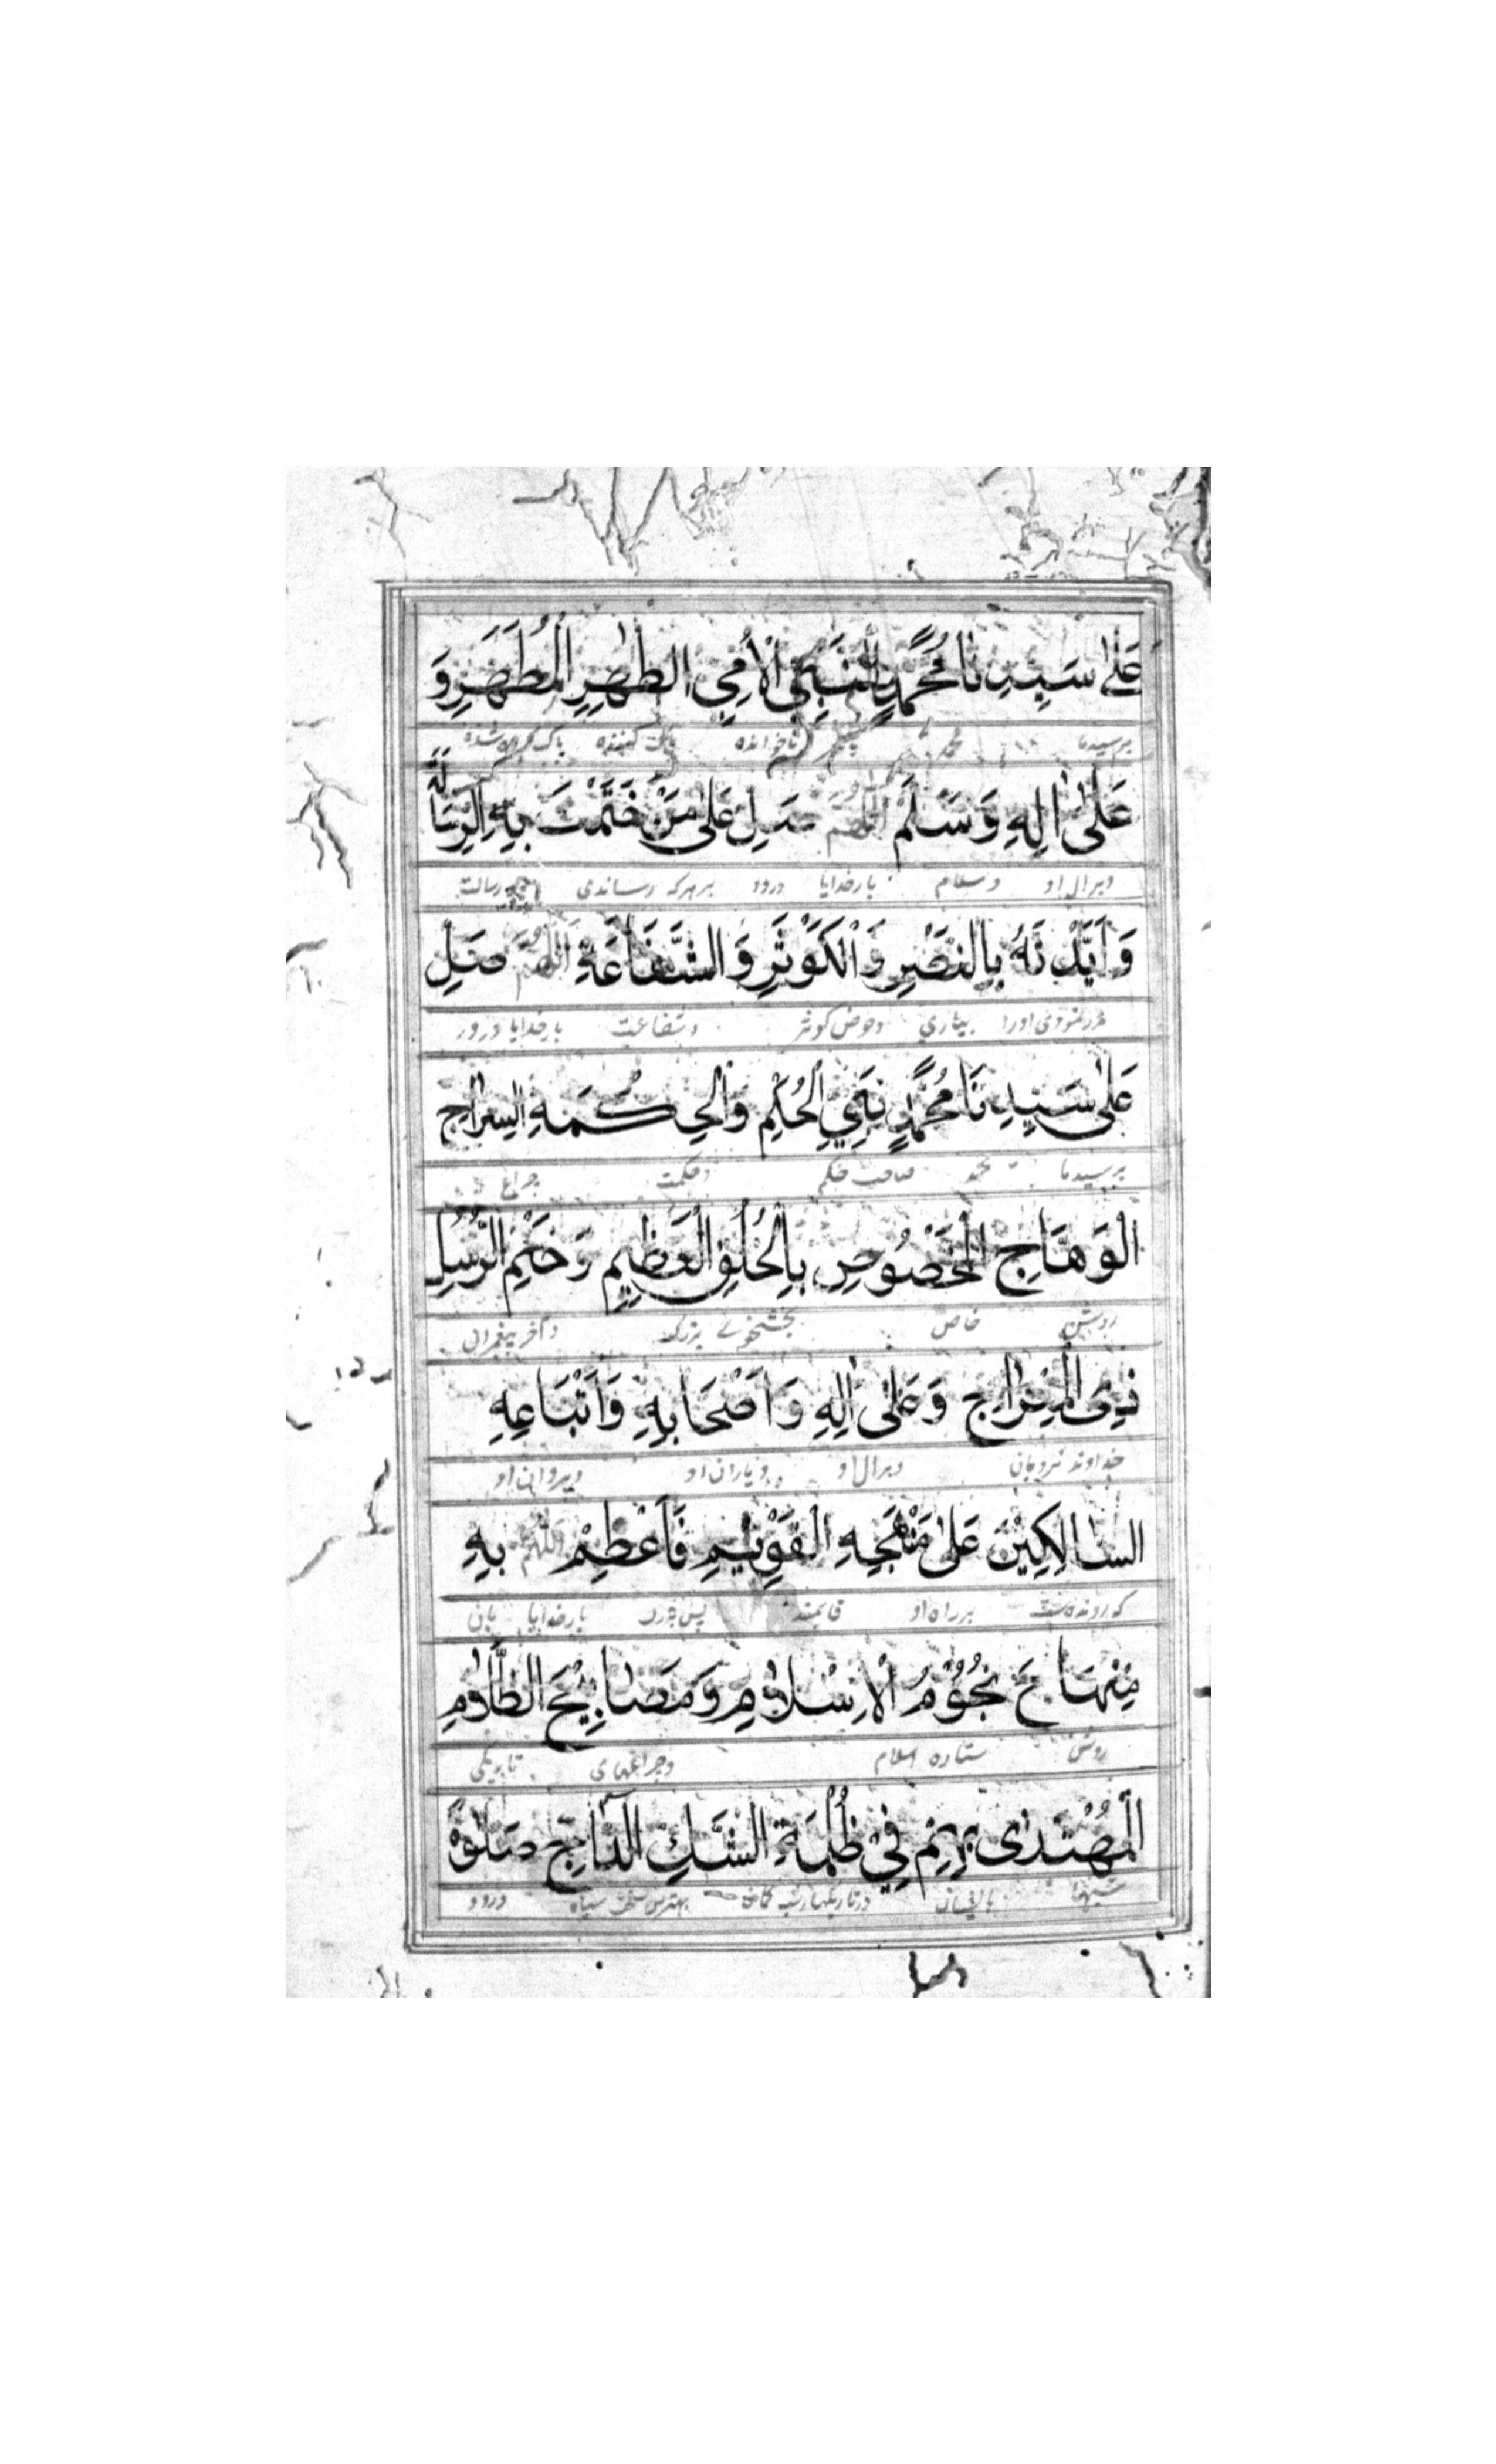 عَلىٰ سَيِّدِنَا مُحَمَّدٍ النَّبِيِّ الْاُمِّيِّ الطَّاهِرِ الْمُطَهَّرِ وَ
برسیدما محمد ناخوانده پاک کننده پاک کرده شده
عَلىٰ اٰلِهٖ وَسَلَّمَ اللّٰهُمَّ صَلِّ عَلىٰ مَنْ خَتَمْتَ بِهِ الرِّسَالَةَ
وبرال او وسلام بارخدایا درود برهرکه رساندی رسالت
وَاَيَّدْتَهُ بِالنَّصْرِ وَالْكَوْثَرِ وَالشَّفَاعَةِ اللّٰهُمَّ صَلِّ
بیاری وحوض کوثر وشفاعت بارخدایا درود
عَلىٰ سَيِّدِنَا مُحَمَّدٍ نَبِيِّ الْحُكْمِ وَالْحِكْمَةِ السِّرَاجِ
برسیدما محمد صاحب حکم وحکمت چراغ
الْوَهَّاجِ الْمَخْصُوْصِ بِالْخُلُقِ الْعَظِيْمِ وَخَتْمِ الرُّسُلِ
روشن خاص بزرگ واخر پیغمبران
ذِى الْمِعْرَاجِ وَعَلىٰ اٰلِهٖ وَاَصْحَابِهٖ وَاَتْبَاعِهٖ
خداوند نردبان وبرال او ویاران او وپیروان او
السَّالِكِيْنَ عَلىٰ مَنْهَجِهِ الْقَوِيْمِ فَاَعْظِمْ اللّٰهُمَّ بِهٖ
برراه او بارخدایا
مِنْهَاجَ نُجُوْمِ الْاِسْلَامِ وَمَصَابِيْحِ الظَّلَامِ
روشن ستاره اسلام وچراغهای تاریکی
الْمُهْتَدٰى بِهِمْ فِيْ ظُلْمَةِ الشَّكِّ الدَّاجِ صَلٰوةً
سیاه درود